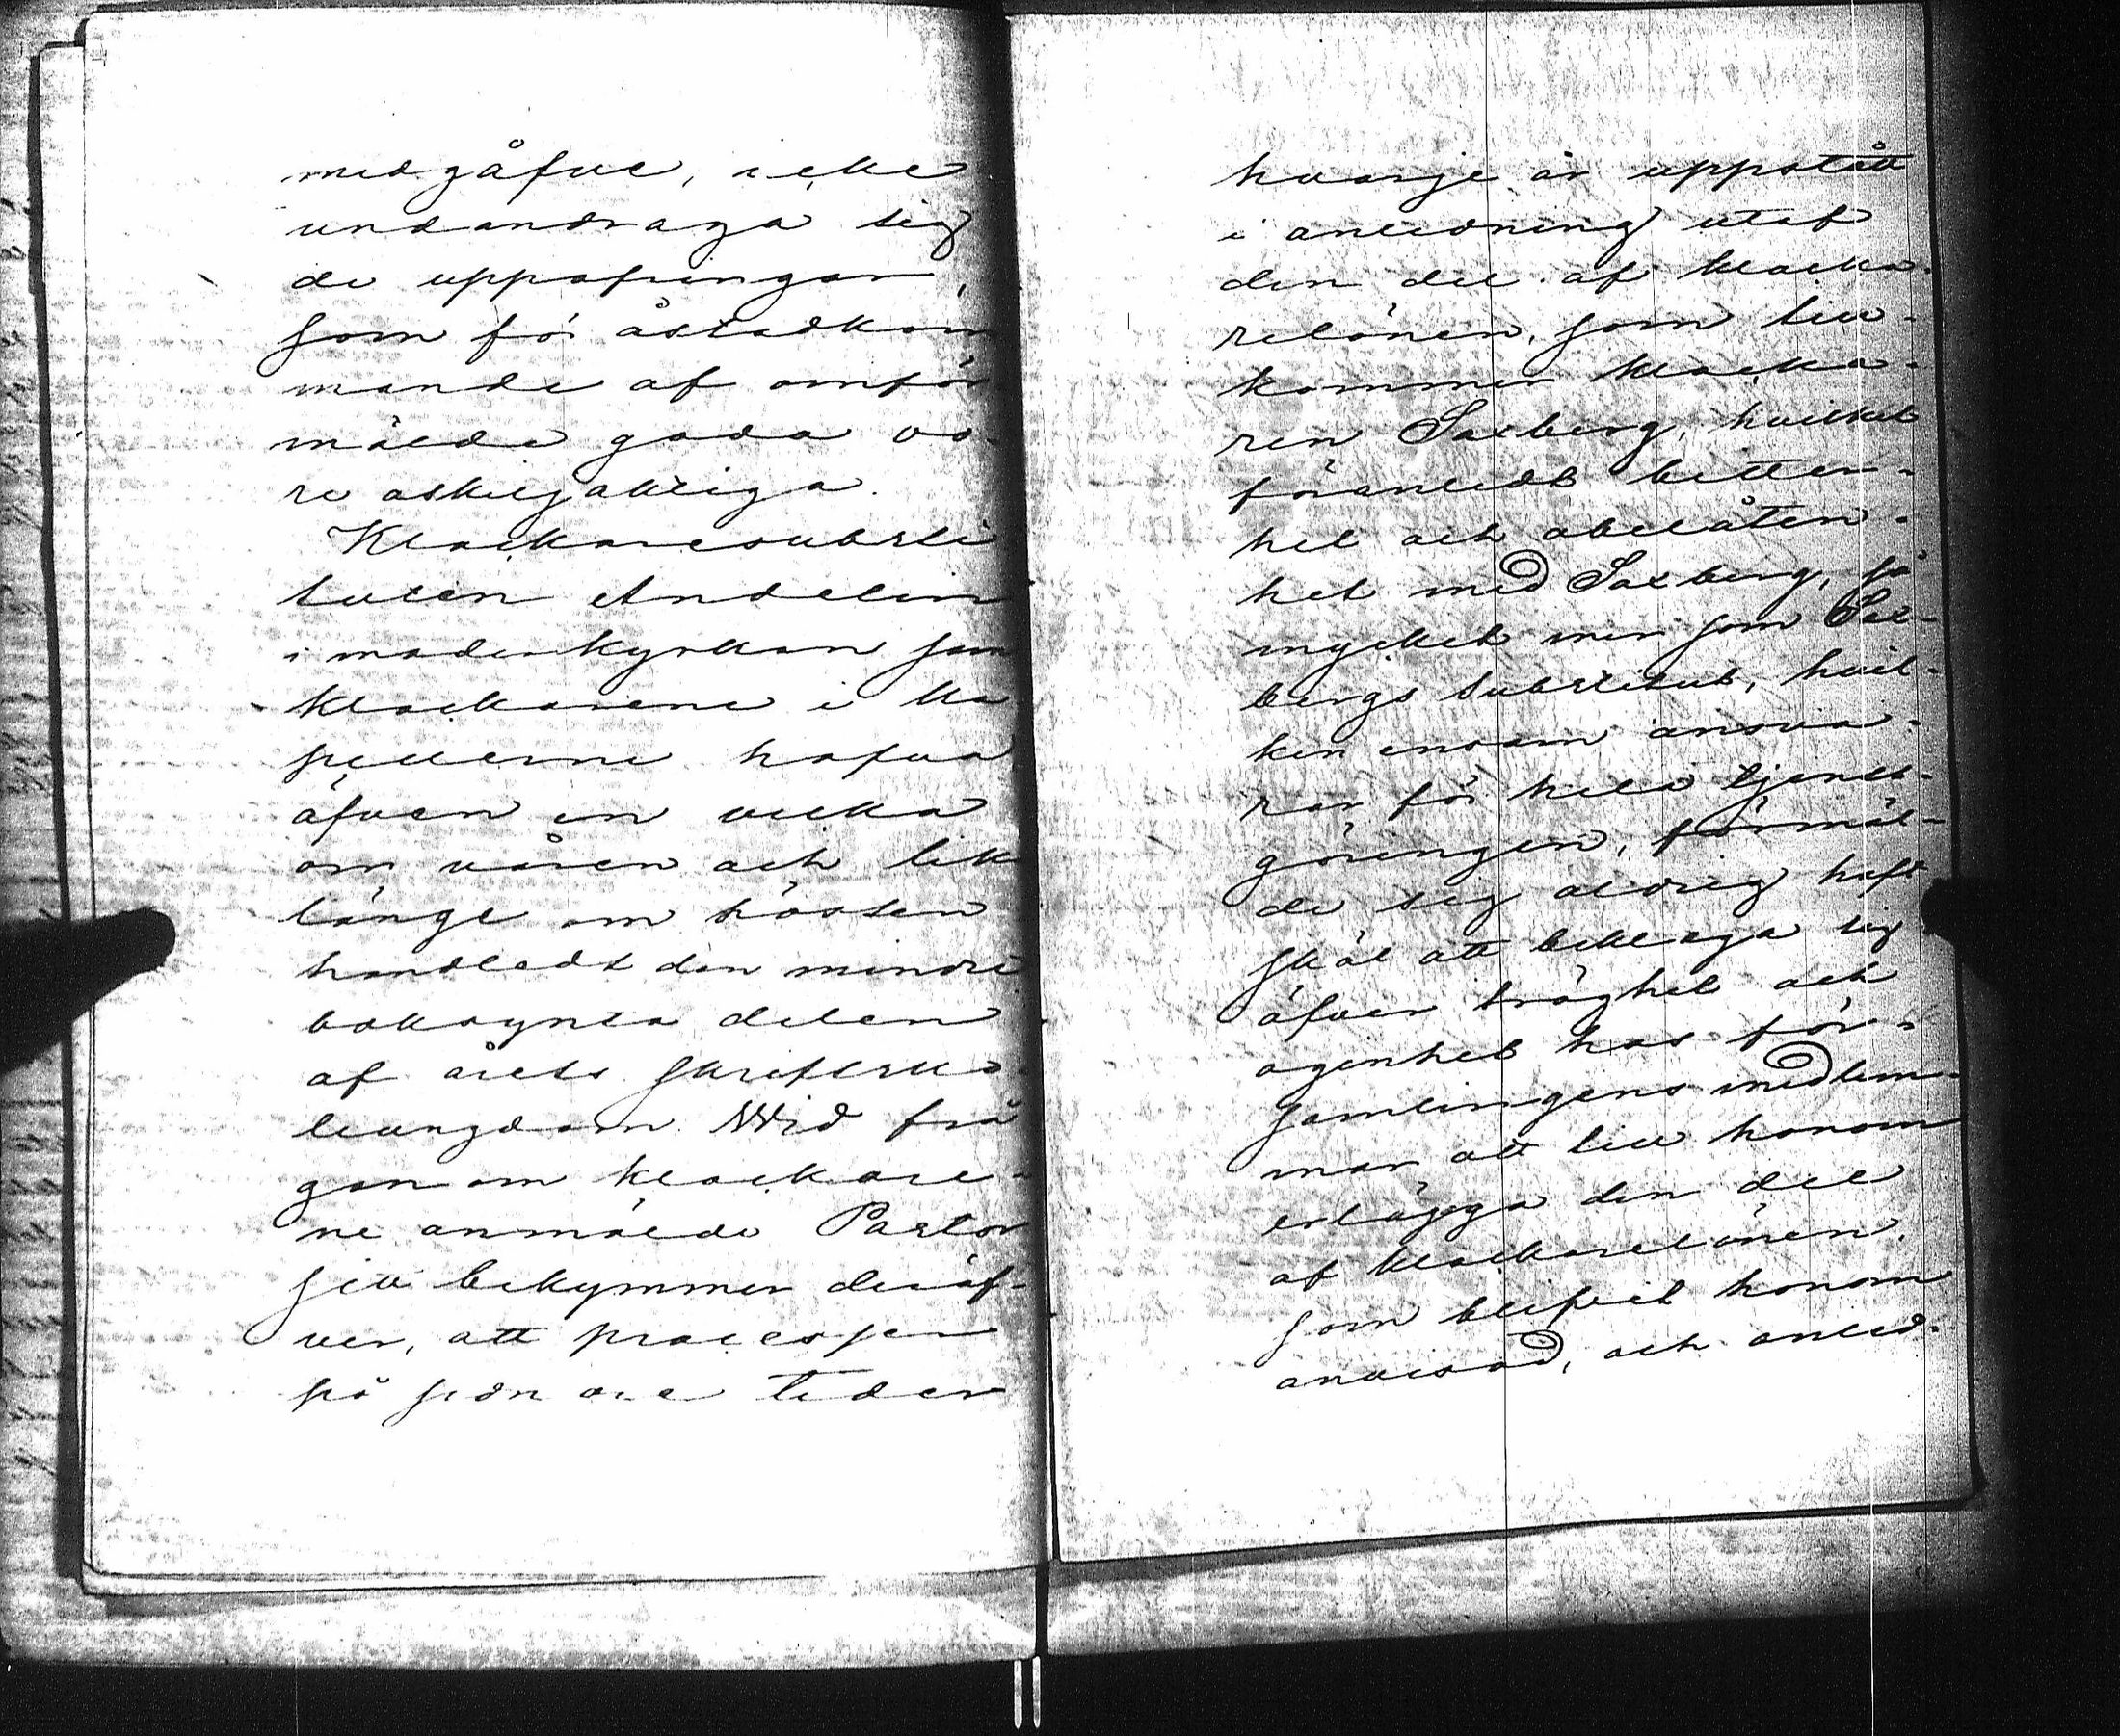 medgåfve, icke
undandraga sig
de uppofringar,
som för åstadkom
mande af omför
mälde goda vo-
re oskiljaktiga.
Klockaresubsti
tuten Andelin
i moderkyrkan sam
klockarene i ka
pellerne hafva
äfven en vecka
om våren och lik
länge om hösten
handledt den mindre
boksynta delen
af årets skriftsko-
leungdom. Wid frå
gan om klockare-
ne anmälde Pastor
sitt bekymmer deröf-
ver, att processer
på sednare tider
hvarje år uppstått
i anledning utaf
den del af klocka-
relönen, som till-
kommer klocka-
ren Saxberg, hvilket
föranledt bitter-
het och obelåten-
het med Saxberg, så
mycket mer som Sax-
bergs substitut, hvil-
ken ensam ansva-
rar för hela tjenst-
göringen, förmäl-
de sig aldrig haft
skäl att beklaga sig
öfver tröghet och
ogenhet hos för-
samlingens medlem-
mar att till honom
erlägga den del
af klockarelönen,
som blifvit honom
anvisad, och anled-